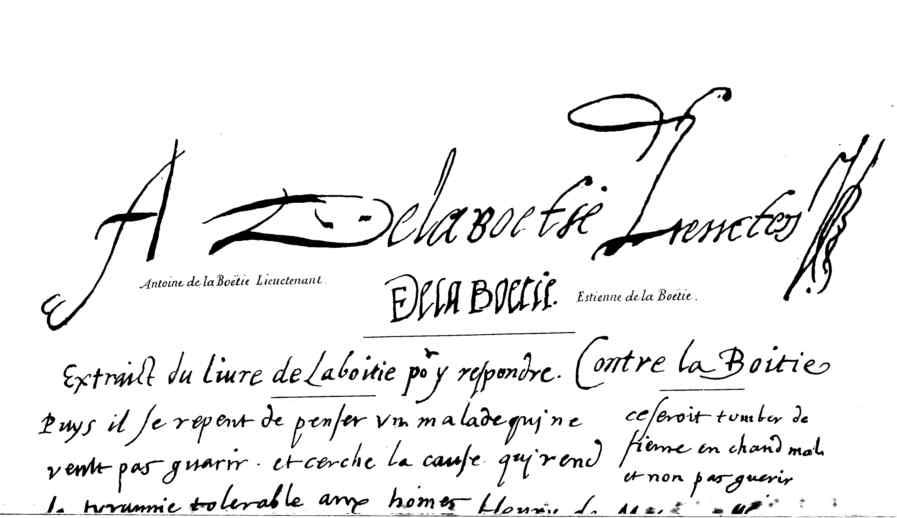 A Delaboetie Lieucten
Antoine de la Boëtie Lieuctenant.
E De la Boetie.
Estienne de la Boëtie.
Extraict du liure de Laboitie por y respondre. Contre la Boitie
Puys il se repent de penser vn malade qui ne
veult pas guarir. et cerche la cause qui rend
la tyrannie tolerable aux homes
ce seroit tumber de
fieure en chaud mal
et non pas guerir